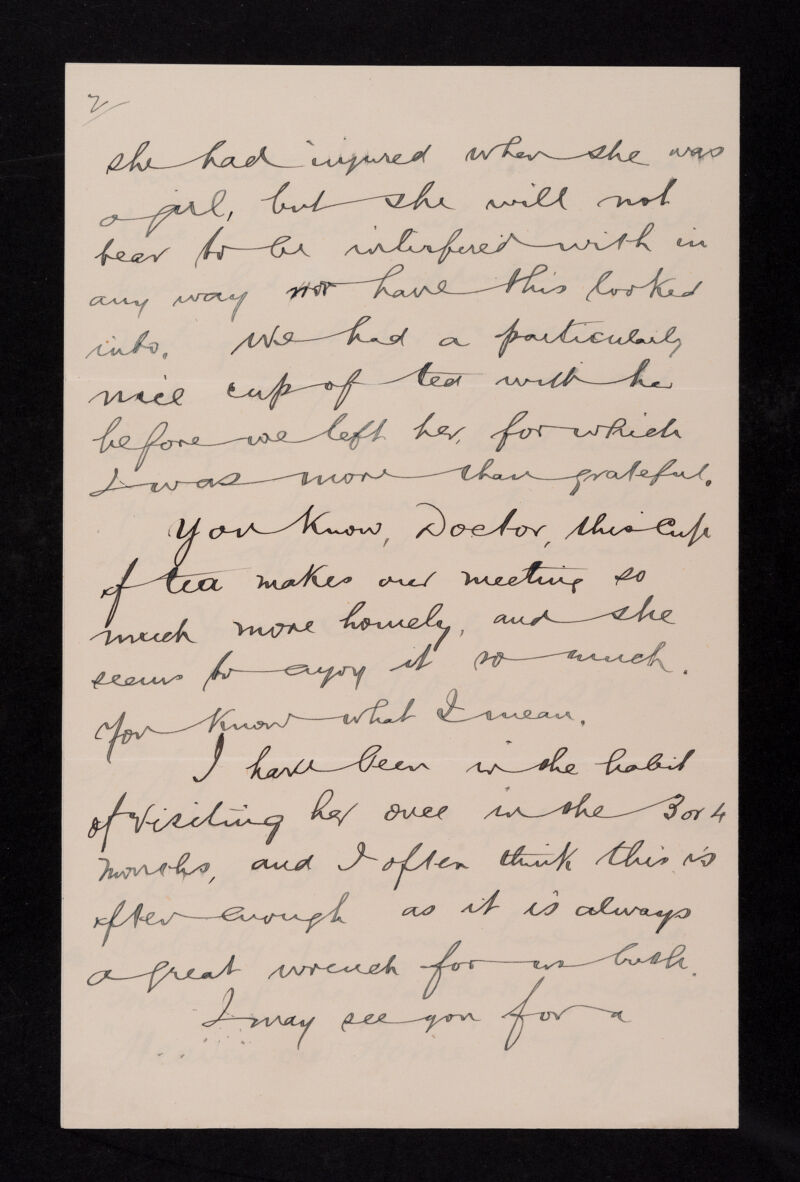 2/
she had injured when she was
a girl, but she will not
bear to be interfered with in
any way nor have this looked
into. We had a particularly
nice cup of tea with her
before we left her, for which
I was more than grateful.
You Know, Doctor, this Cup
of tea makes our meeting so
much more homely, and she
seems to enjoy it so much.
You Know what I mean.
I have been in the habit
of visiting her once in the 3 or 4
Months, and I often think this is
often enough as it is always
a great wrench for us both.
I may see you for a